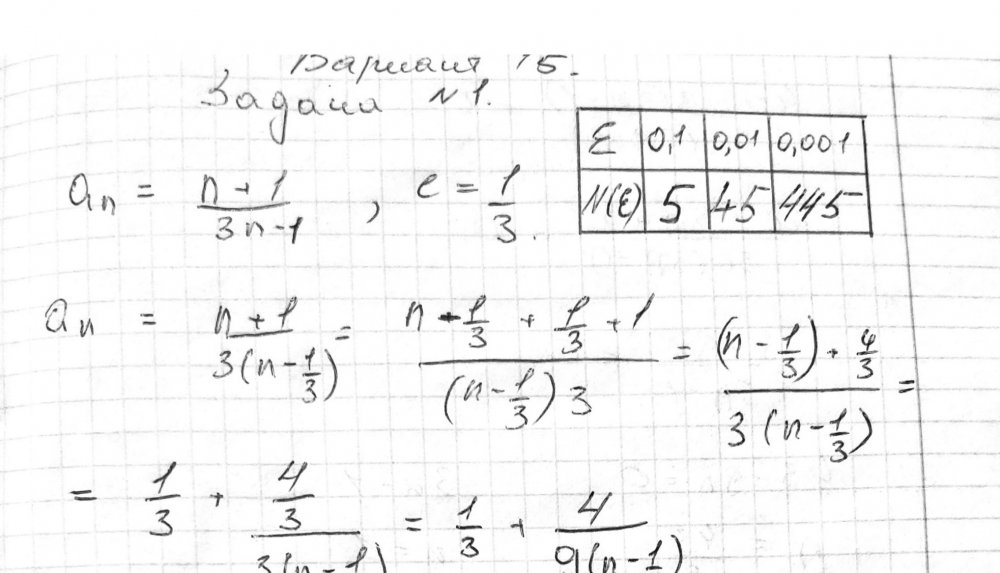 Вариант 15.
Задача №1.
a_n = (n+1)/(3n-1), c = 1/3.
ε | 0,1 | 0,01 | 0,001
N(ε) | 5 | 45 | 445
a_n = (n+1)/(3(n-1/3)) = (n-1/3+1/3+1)/((n-1/3)3) = ((n-1/3)+4/3)/(3(n-1/3)) =
= 1/3 + (4/3)/(3(n-1)) = 1/3 + 4/(9(n-1))